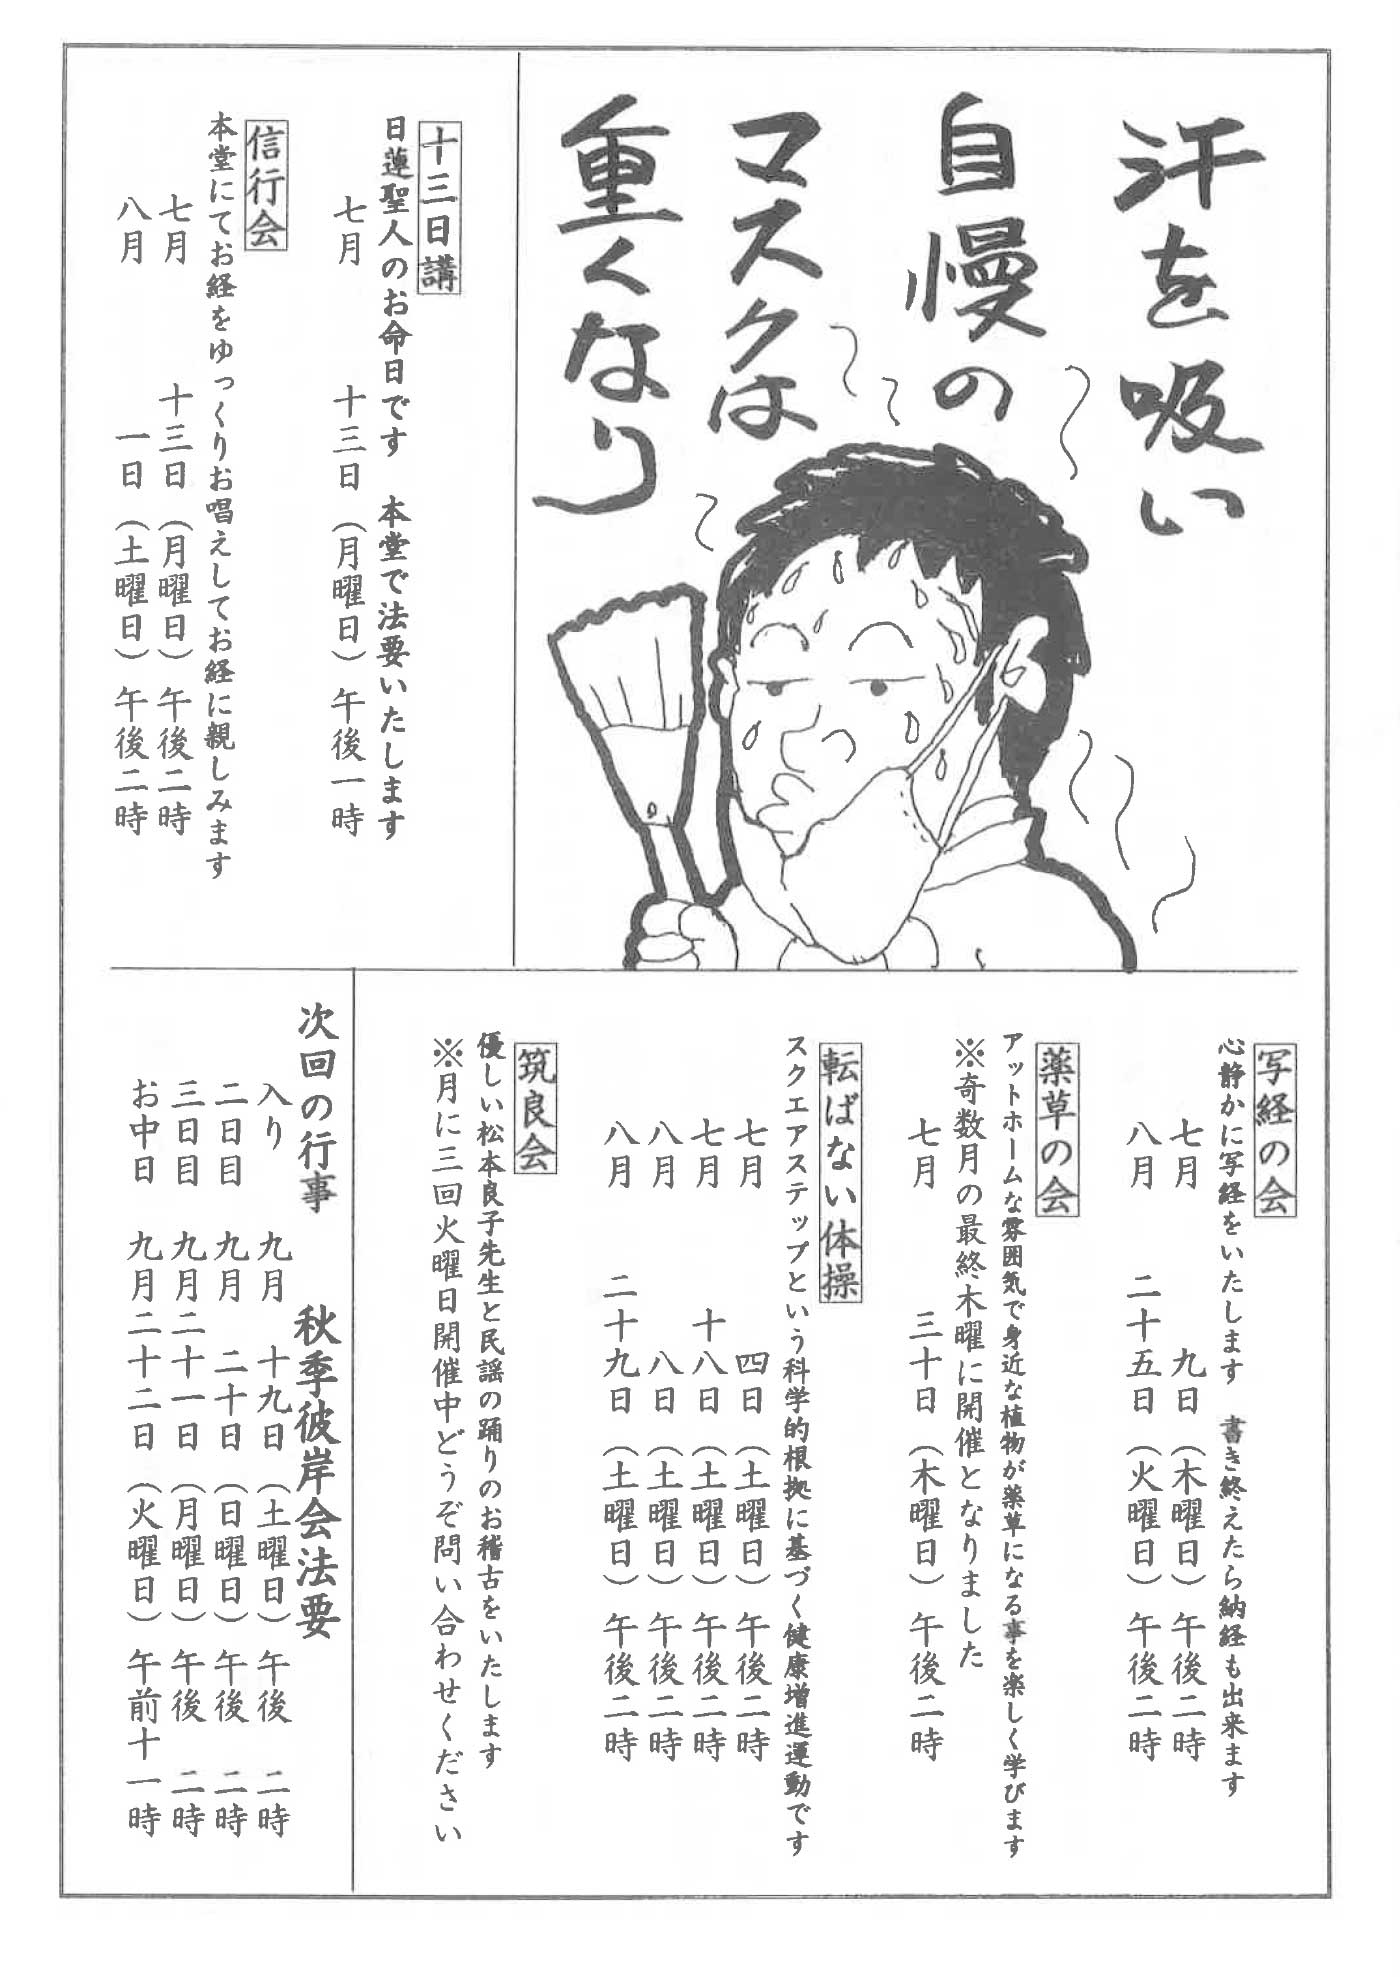 汗を吸い
自慢の
マスクは
重くなり
十三日講
日蓮聖人のお命日です　本堂で法要いたします
七月　十三日（月曜日）午後一時
信行会
本堂にてお経をゆっくりお唱えしてお経に親しみます
七月　十三日（月曜日）午後二時
八月　一日（土曜日）午後二時
写経の会
心静かに写経をいたします　書き終えたら納経も出来ます
七月　九日（木曜日）午後二時
八月　二十五日（火曜日）午後二時
薬草の会
アットホームな雰囲気で身近な植物が薬草になる事を楽しく学びます
※奇数月の最終木曜に開催となりました
七月　三十日（木曜日）午後二時
転ばない体操
スクエアステップという科学的根拠に基づく健康増進運動です
七月　四日（土曜日）午後二時
七月　十八日（土曜日）午後二時
八月　八日（土曜日）午後二時
八月　二十九日（土曜日）午後二時
筑良会
優しい松本良子先生と民謡の踊りのお稽古をいたします
※月に三回火曜日開催中どうぞ問い合わせください
次回の行事　秋季彼岸会法要
入り　九月　十九日（土曜日）午後　二時
二日目　九月　二十日（日曜日）午後　二時
三日目　九月二十一日（月曜日）午後　二時
お中日　九月二十二日（火曜日）午前十一時